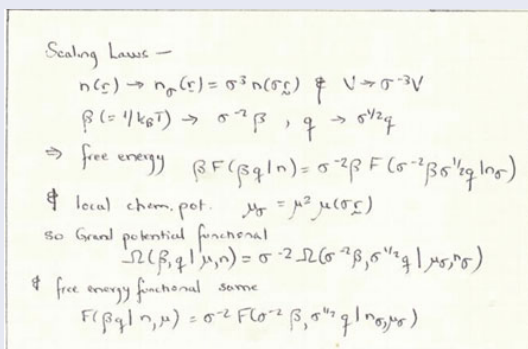 Scaling Laws —
n(r) → nσ(r) = σ³ n(σr) & V → σ⁻³V
β (= 1/kBT) → σ⁻²β , q → σ^1/2 q
⇒ free energy βF(βq|n) = σ⁻²β F(σ⁻²βσ^1/2 q|nσ)
& local chem. pot. μσ = μ² μ(σr)
so Grand potential functional
Ω(β,q|μ,n) = σ⁻² Ω(σ⁻²β,σ^1/2 q|μσ,nσ)
& free energy functional same
F(βq|n,μ) = σ⁻² F(σ⁻²β,σ^1/2 q|nσ,μσ)